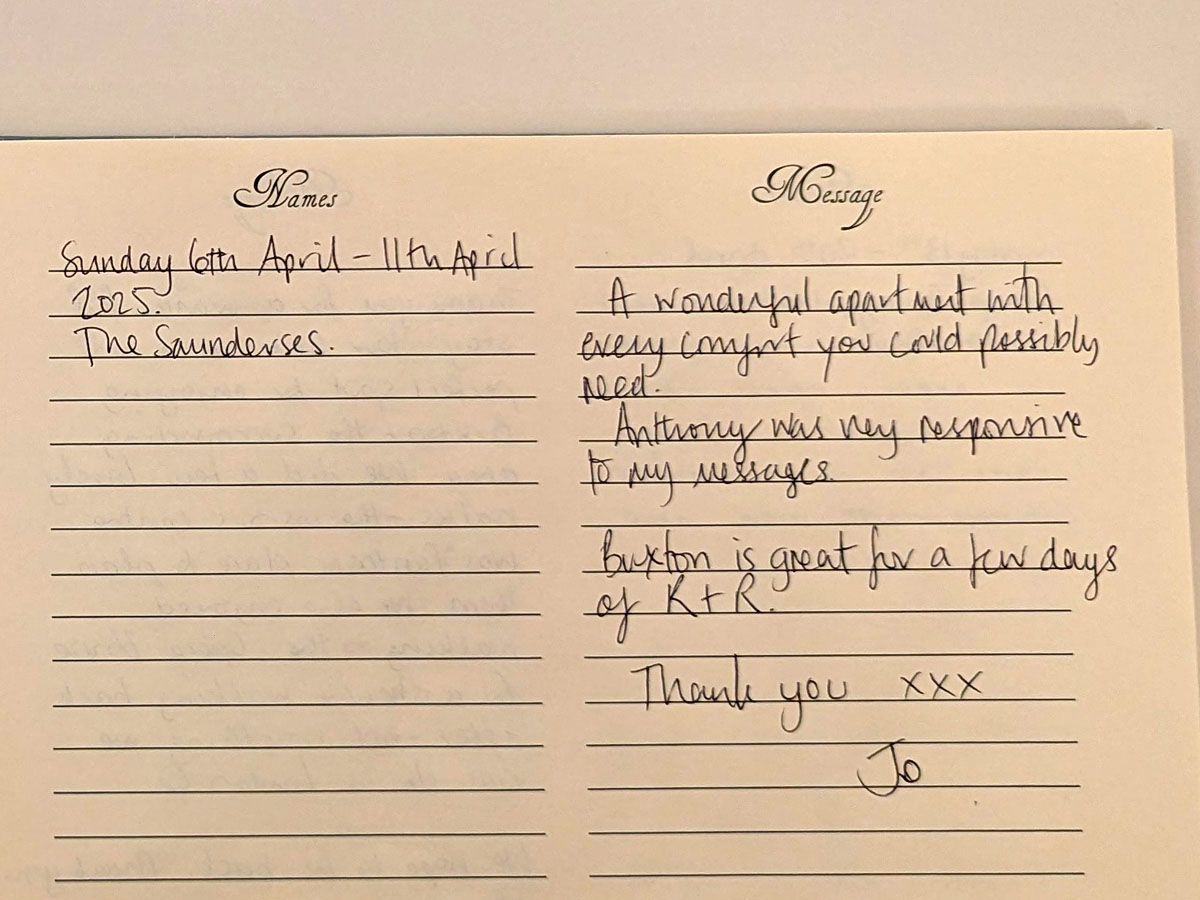 Names
Sunday 6th April - 11th April
2025.
The Saunderses.
Message
A wonderful apartment with
every comfort you could possibly
need.
Anthony was very responsive
to my messages.
Buxton is great for a few days
of R+R.
Thank you xxx
Jo